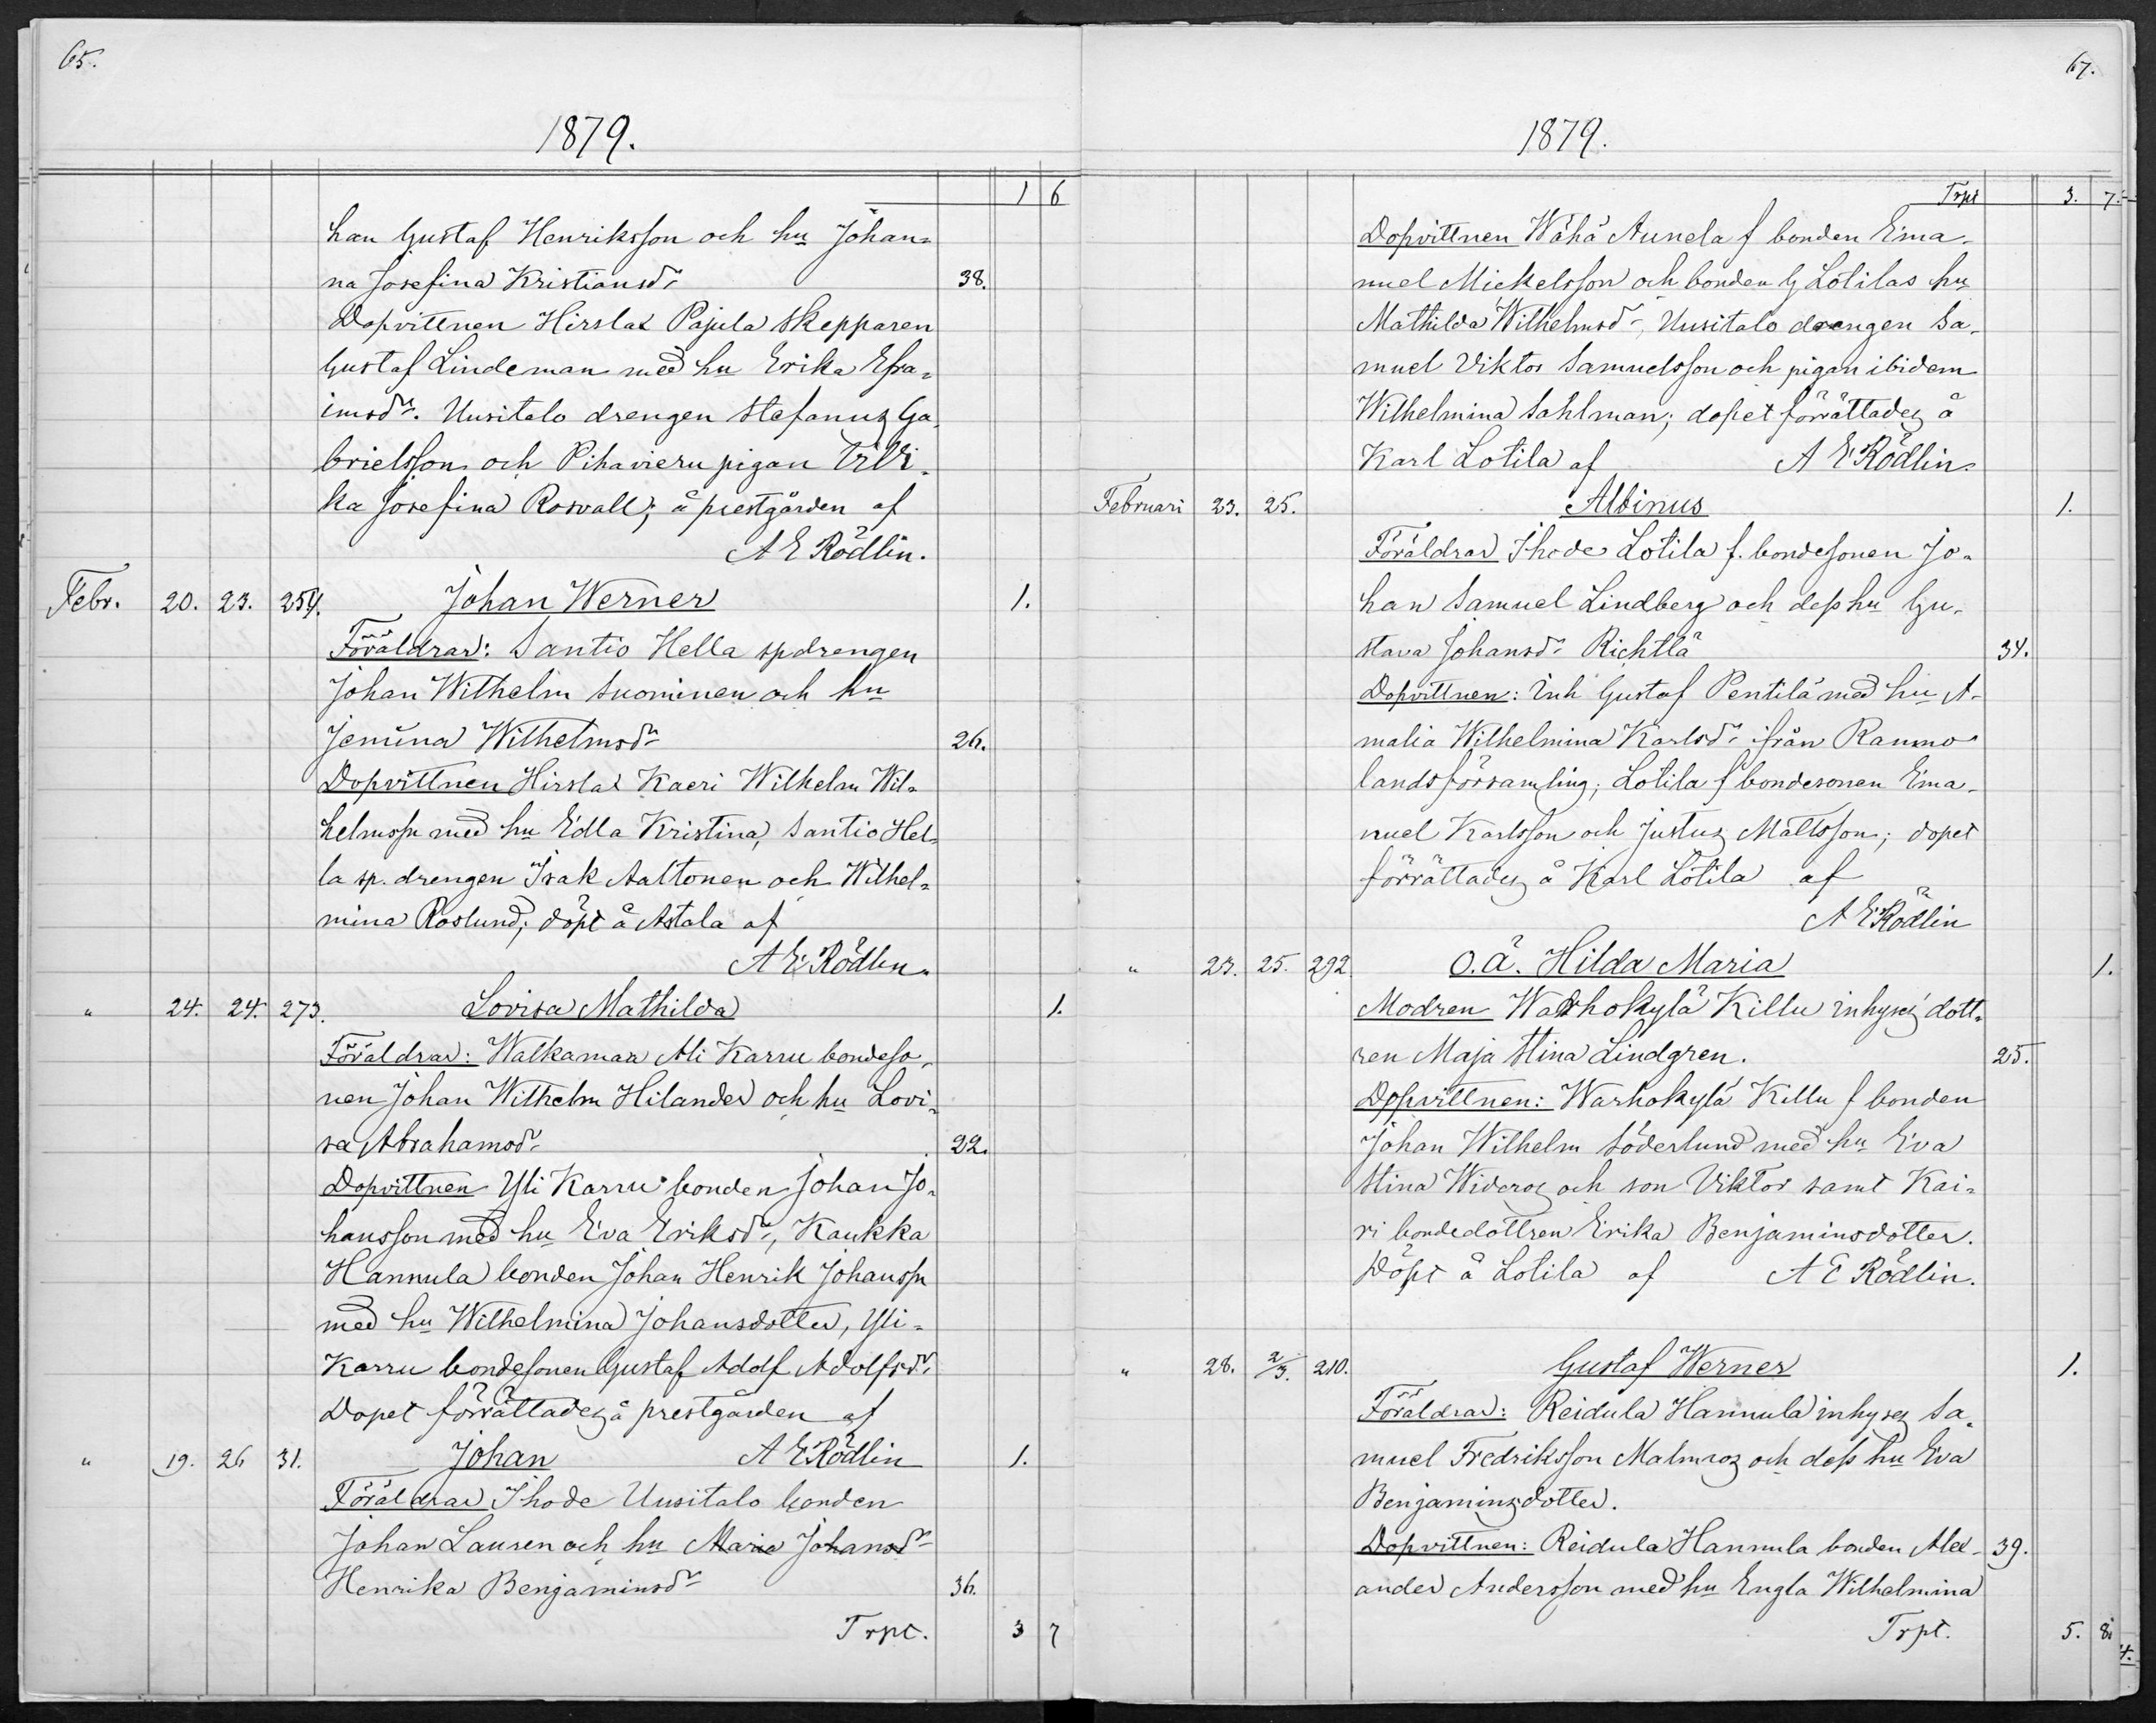 65.
1879.
1 6
han Gustaf Henriksson och hu Johan=
na Josefina Kristiansdr 38.
Dopvittnen Hirslax Pajula skepparen
Gustaf Lindeman med hu Erika Efra=
imsdr. Uusitalo drengen Stefanus Ga=
brielsson och Pihavieru pigan Ulri=
ka Josefina Rosvall; å prestgården af
A E Rödlin.
Febr. 20. 23. 254. Johan Werner 1.
Föräldrar: Santio Hella spdrengen
Johan Wilhelm Suominen och hu
Jemina Wilhelmsdr 26.
Dopvittnen Hirslax Kaeri Wilhelm Wil=
helmssn med hu Edla Kristina, Santio Hel=
la sp. drengen Isak Aaltonen och Wilhel=
mina Roslund; döpt å Astala af
A E Rödlin.
" 24. 24. 273. Lovisa Mathilda 1.
Föräldrar: Walkamaa Ali Karru bondeso=
nen Johan Wilhelm Hilander och hu Lovi=
sa Abrahamsdr 22.
Dopvittnen Yli Karru bonden Johan Jo=
hansson med hu Eva Eriksdr, Kaukka
Hannula bonden Johan Henrik Johanssn
med hu Wilhelmina Johansdotter, Yli=
Karru bondesonen Gustaf Adolf Adolfsdr.
Dopet förrättades å prestgården af
" 19. 26 31. Johan A E Rödlin 1.
Föräldrar Ihode Uusitalo bonden
Johan Lauren och hu Maria Johansdr
Henrika Benjaminsdr 36.
Trpt. 3 7
67.
1879.
Trpt 3. 7.
Dopvittnen Wähä Aunela f bonden Ema=
nuel Mickelsson och bonden G Lotilas hu
Mathilda Wilhelmsdr, Uusitalo drengen Sa=
muel Viktor Samuelsson och pigan ibidem
Wilhelmina Sahlman; dopet förrättades å
Karl Lotila af A E Rödlin
Februari 23. 25. Albinus 1.
Föräldrar Ihode Lotila f. bondesonen Jo=
han Samuel Lindberg och dess hu Gu=
stava Johansdr Richtlä 34.
Dopvittnen: Inh Gustaf Pentilä med hu A=
malia Wilhelmina Karlsdr från Raumo
landsförsamling; Lotila f bondesonen Ema=
nuel Karlsson och Justus Mattsson; dopet
förrättades å Karl Lotila af
A E Rödlin
" 23. 25. 292 O.ä. Hilda Maria 1.
Modren Warhokylä Killu inhyses dott=
ren Maja Stina Lindgren. 25.
Dopvittnen: Warhokylä Killu f bonden
Johan Wilhelm Söderlund med hu Eva
Stina Wideros och son Viktor samt Kai=
ri bondedottren Erika Benjaminsdotter.
Döpt å Lotila af A E Rödlin.
" 28. 2/3. 210. Gustaf Werner 1.
Föräldrar: Reidula Hannula inhyses Sa=
muel Fredriksson Malmros och dess hu Eva
Benjaminsdotter.
Dopvittnen: Reidula Hannula bonden Alex= 39.
ander Andersson med hu Engla Wilhelmina
Trpt. 5. 8.